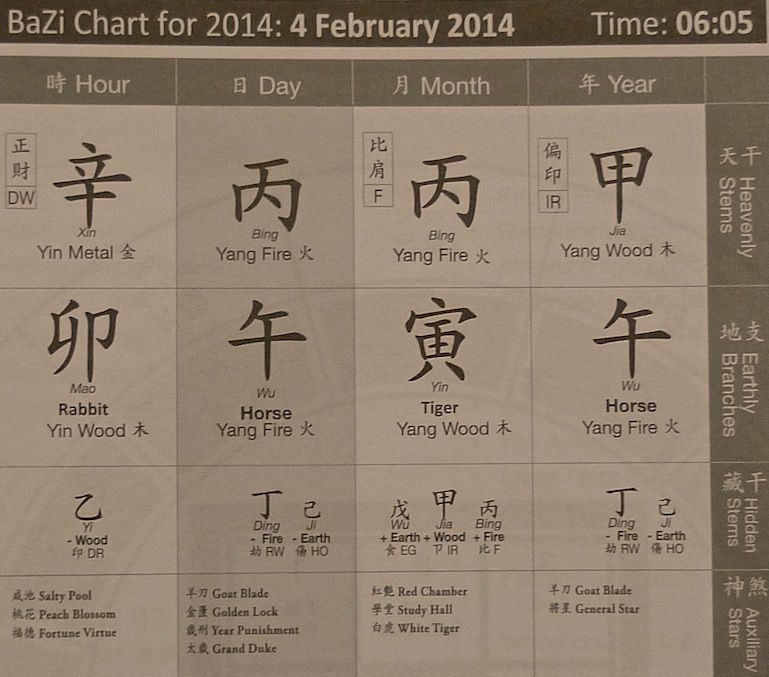 BaZi Chart for 2014: 4 February 2014 Time: 06:05
時 Hour 日 Day 月 Month 年 Year
正財 DW 辛 丙 比肩 F 丙 偏印 IR 甲 天干 Heavenly Stems
Xin Bing Bing Jia
Yin Metal 金 Yang Fire 火 Yang Fire 火 Yang Wood 木
卯 午 寅 午 地支 Earthly Branches
Mao Wu Yin Wu
Rabbit Horse Tiger Horse
Yin Wood 木 Yang Fire 火 Yang Wood 木 Yang Fire 火
乙 丁 己 戊 甲 丙 丁 己 藏干 Hidden Stems
Yi Ding Ji Wu Jia Bing Ding Ji
- Wood - Fire - Earth + Earth + Wood + Fire - Fire - Earth
印 DR 劫 RW 傷 HO 食 EG 卩 IR 比 F 劫 RW 傷 HO
咸池 Salty Pool 羊刃 Goat Blade 紅艷 Red Chamber 羊刃 Goat Blade 神煞 Auxiliary Stars
桃花 Peach Blossom 金匱 Golden Lock 學堂 Study Hall 將星 General Star
福德 Fortune Virtue 歲刑 Year Punishment 白虎 White Tiger
太歲 Grand Duke